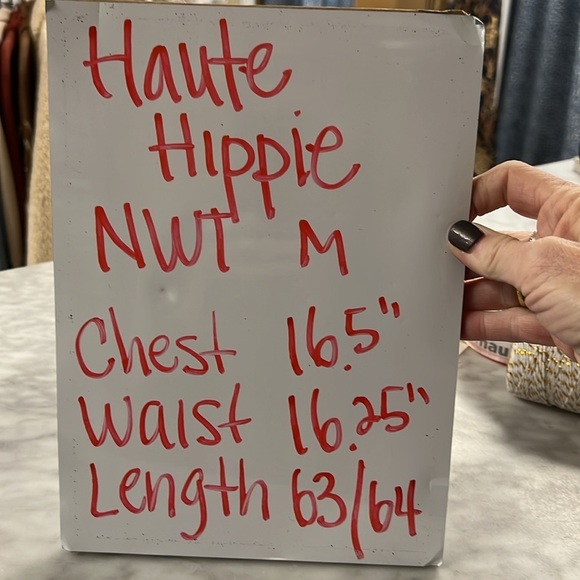 Haute
Hippie
NWT M
Chest 16.5"
Waist 16.25"
Length 63/64
hau